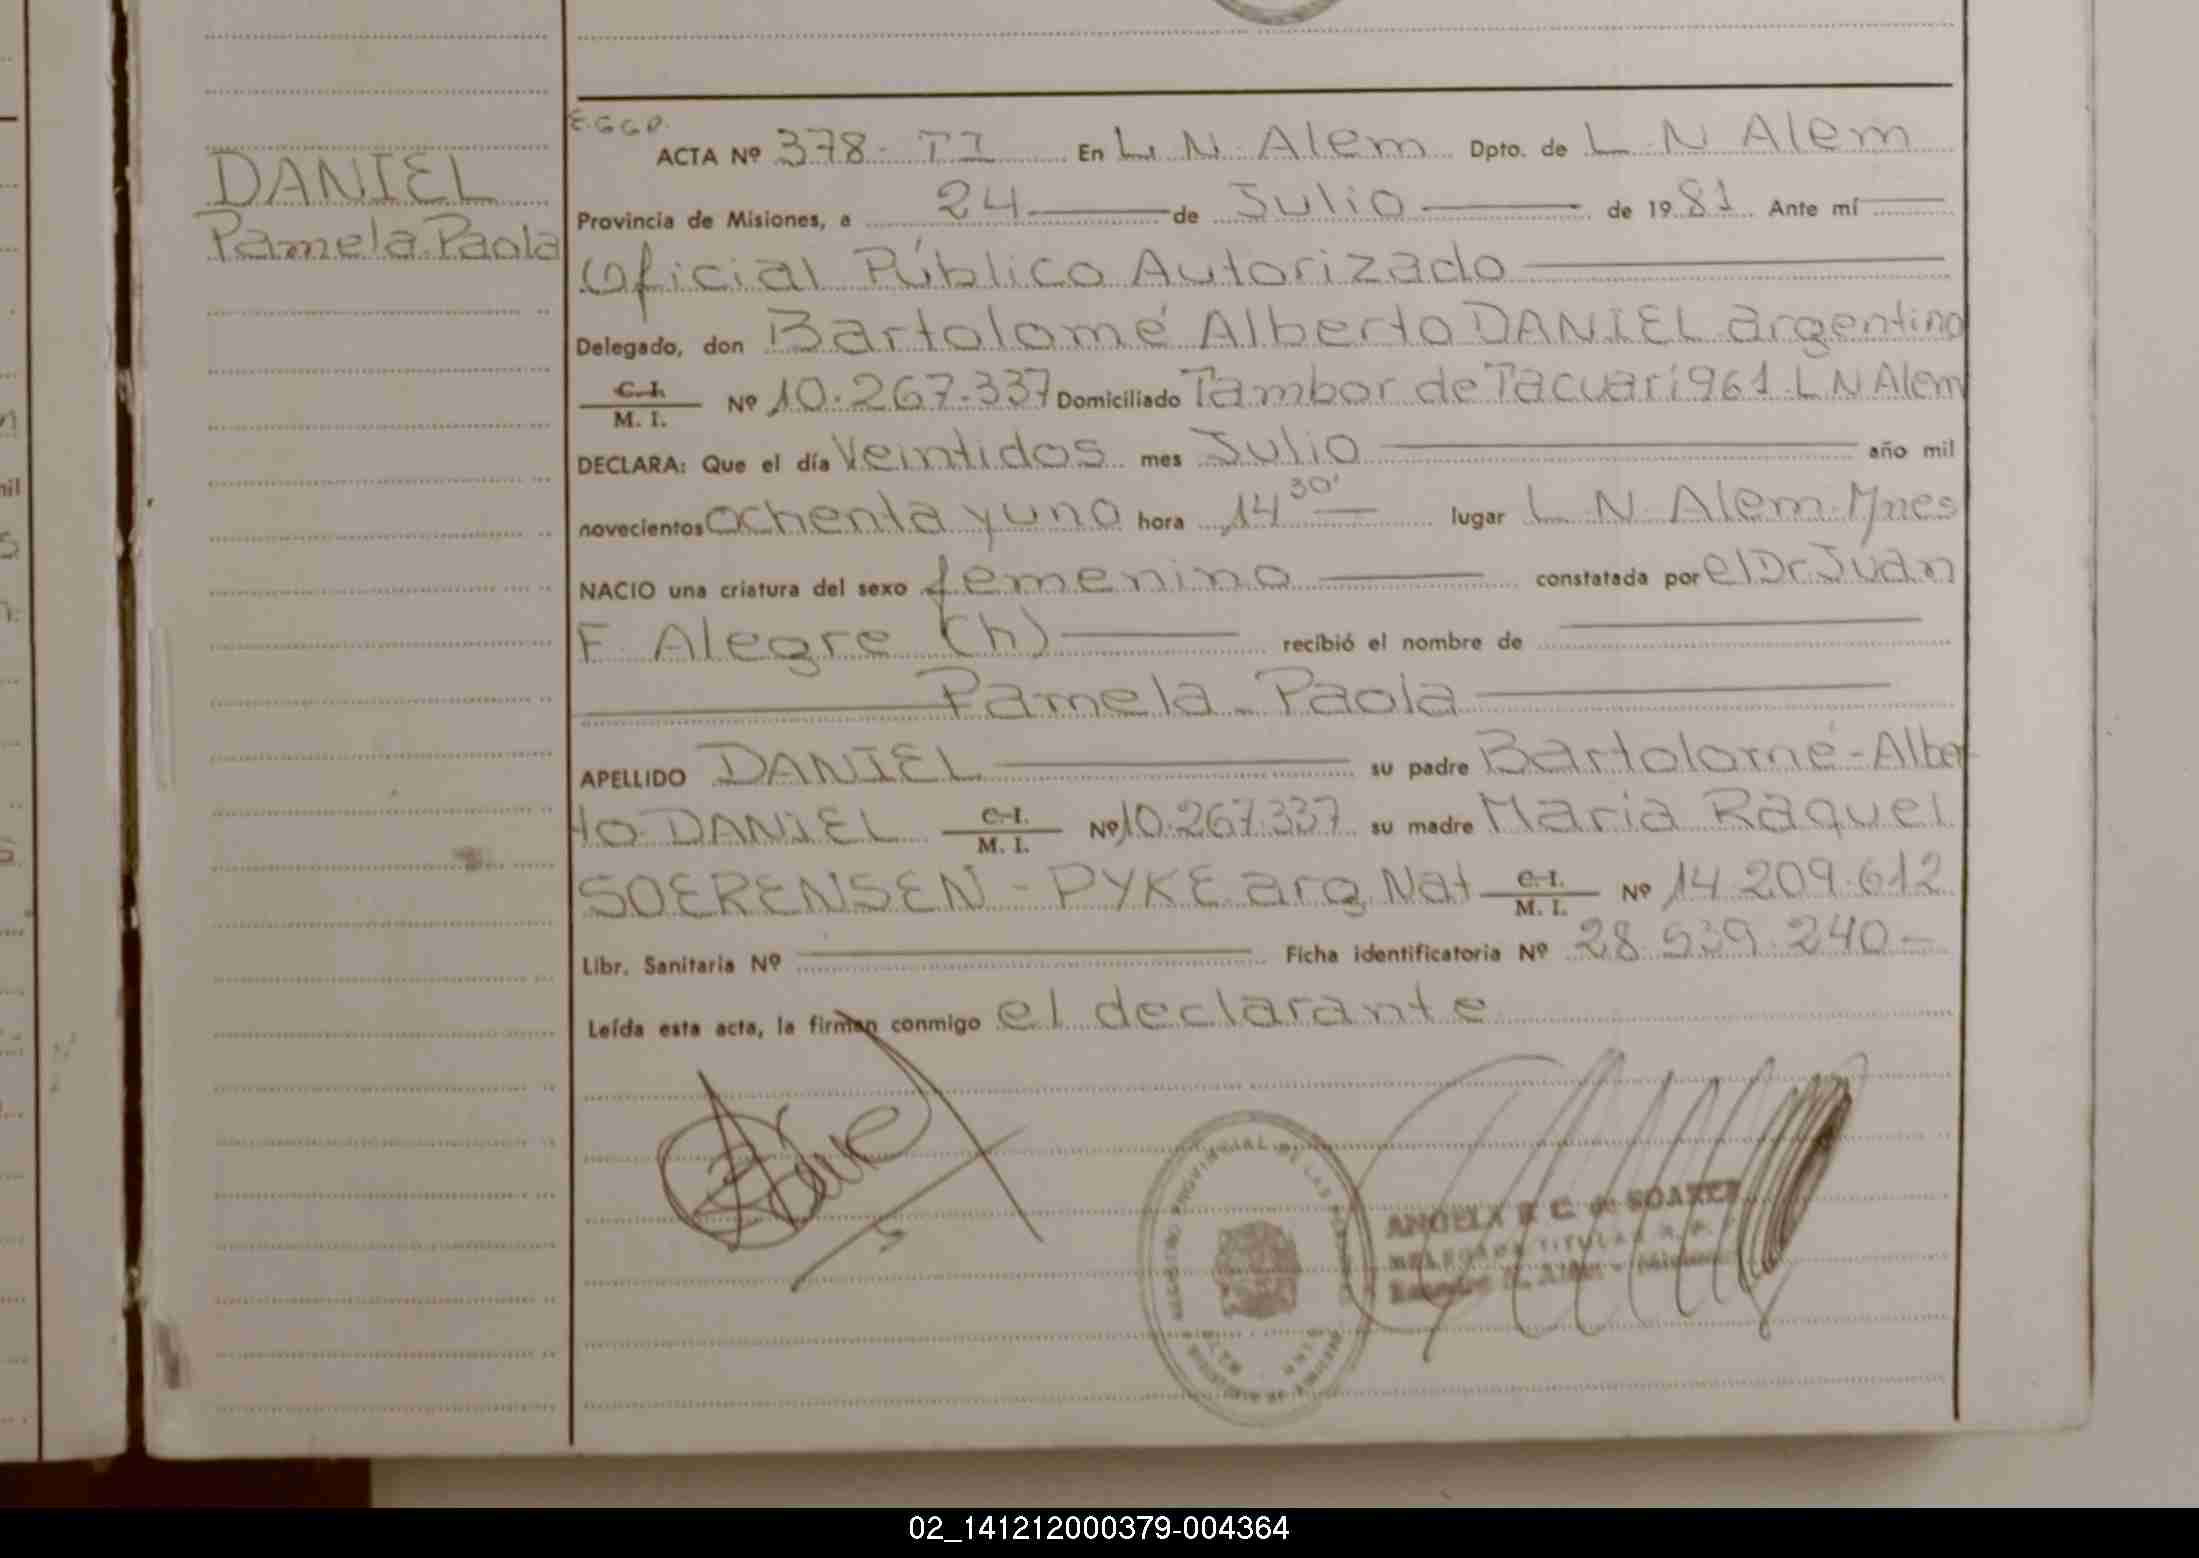 DANIEL
Pamela Paola
E.G.G.D.
ACTA Nº 378- TI En L. N. Alem Dpto. de L. N Alem
Provincia de Misiones, a 24 de Julio de 1981 Ante mí
Oficial Público Autorizado
Delegado, don Bartolomé Alberto DANIEL argentino
C. I. / M. I. Nº 10.267.337 Domiciliado Tambor de Tacuari 961-L N Alem
DECLARA: Que el día Veintidos mes Julio año mil
novecientos ochenta y uno hora 14 30' lugar L N Alem-Mnes
NACIO una criatura del sexo femenino constatada por el Dr. Juan
F. Alegre (h) recibió el nombre de
Pamela Paola
APELLIDO DANIEL su padre Bartolomé-Alber
to DANIEL C. I. / M. I. Nº 10.267.337 su madre Maria Raquel
SOERENSEN - PYKE arg. Nat C. I. / M. I. Nº 14.209.612
Libr. Sanitaria Nº Ficha identificatoria Nº 28.539.240-
Leída esta acta, la firman conmigo el declarante
ANGELA C. de SOAREZ
DELEGADA TITULAR R. P.
N. Alem - Misiones
02_141212000379-004364